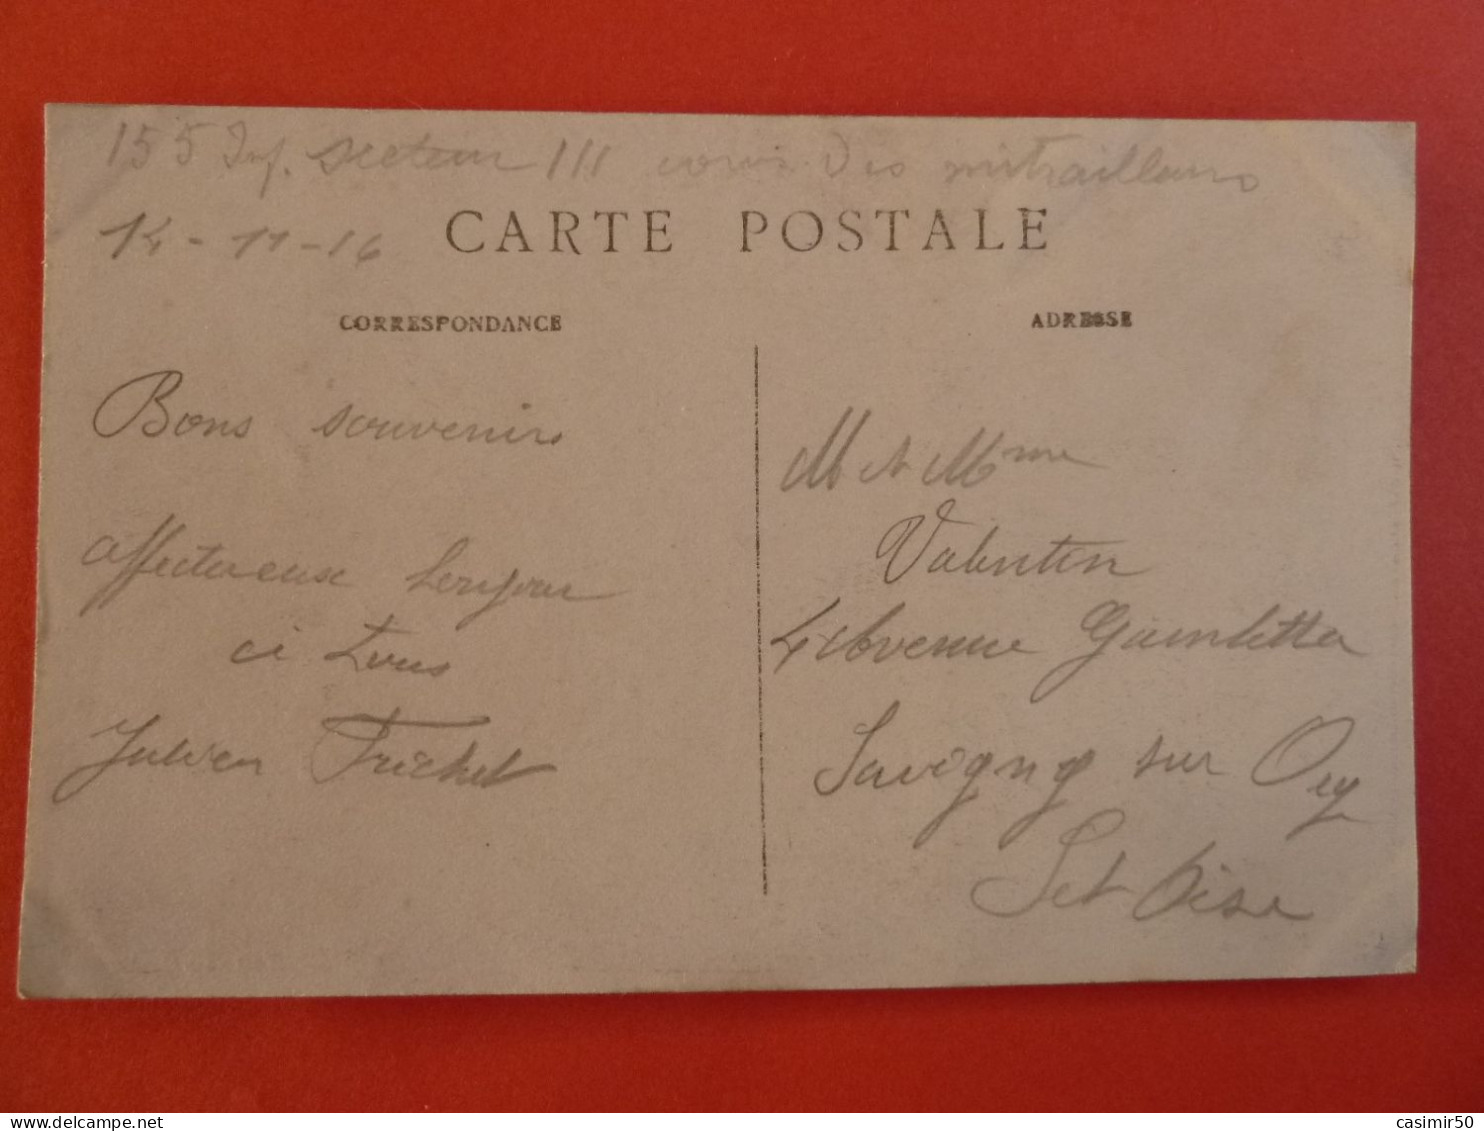 155 Inf. secteur 111 cours des mitrailleurs
14-11-16
CARTE POSTALE
CORRESPONDANCE
ADRESSE
Bons souvenirs
affectueux bonjour
à tous
Julien
M et Mme
Valentin
4 Avenue Gambetta
Savigny sur Org
Set Oise
casimir50